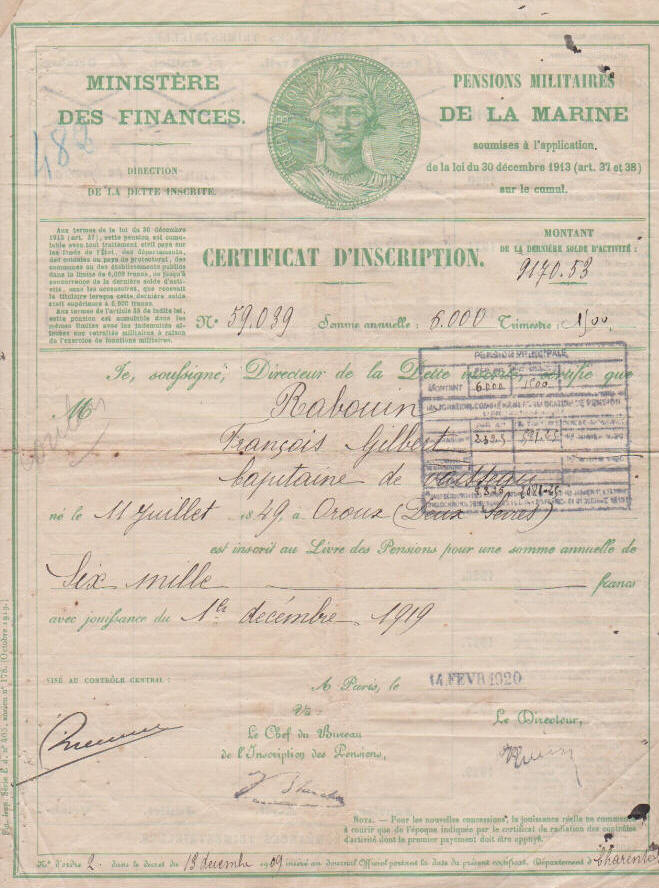 MINISTÈRE
DES FINANCES.
DIRECTION
DE LA DETTE INSCRITE.
488
RÉPUBLIQUE FRANÇAISE
PENSIONS MILITAIRES
DE LA MARINE
soumises à l'application
de la loi du 30 décembre 1913 (art. 37 et 38)
sur le cumul.
Aux termes de la loi du 30 décembre
1913 (art. 37), cette pension est cumu-
lable avec tout traitement civil payé sur
les fonds de l'État, des départements,
des colonies ou pays de protectorat, des
communes ou des établissements publics
dans la limite de 6,000 francs, ou jusqu'à
concurrence de la dernière solde d'acti-
vité, sans les accessoires, que recevait
le titulaire lorsque cette dernière solde
était supérieure à 6,000 francs.
Aux termes de l'article 38 de ladite loi,
cette pension est cumulable dans les
mêmes limites avec les indemnités al-
louées aux retraités militaires à raison
de l'exercice de fonctions militaires.
CERTIFICAT D'INSCRIPTION.
MONTANT
DE LA DERNIÈRE SOLDE D'ACTIVITÉ :
9170.53
N° 59.039 Somme annuelle : 6.000 Trimestre : 1500
Je, soussigné, Directeur de la Dette inscrite, certifie que
M Rabouin
François Gilbert
Capitaine de vaisseau
PENSION PRINCIPALE
MONTANT 6.000 1500
né le 11 Juillet 1849, à Oroux (Deux Sèvres)
est inscrit au Livre des Pensions pour une somme annuelle de
Six mille francs
avec jouissance du 1er décembre 1919
VISÉ AU CONTRÔLE CENTRAL :
A Paris, le 14 FEVR 1920
Vu
Le Chef du Bureau
de l'Inscription des Pensions,
Le Directeur,
NOTA. — Pour les nouvelles concessions, la jouissance réelle ne commence
à courir que de l'époque indiquée par le certificat de radiation des contrôles
d'activité dont le premier payement doit être appuyé.
N° d'ordre 2 dans le décret du 13 décembre 1909 inséré au Journal Officiel portant la date du présent certificat. Département d